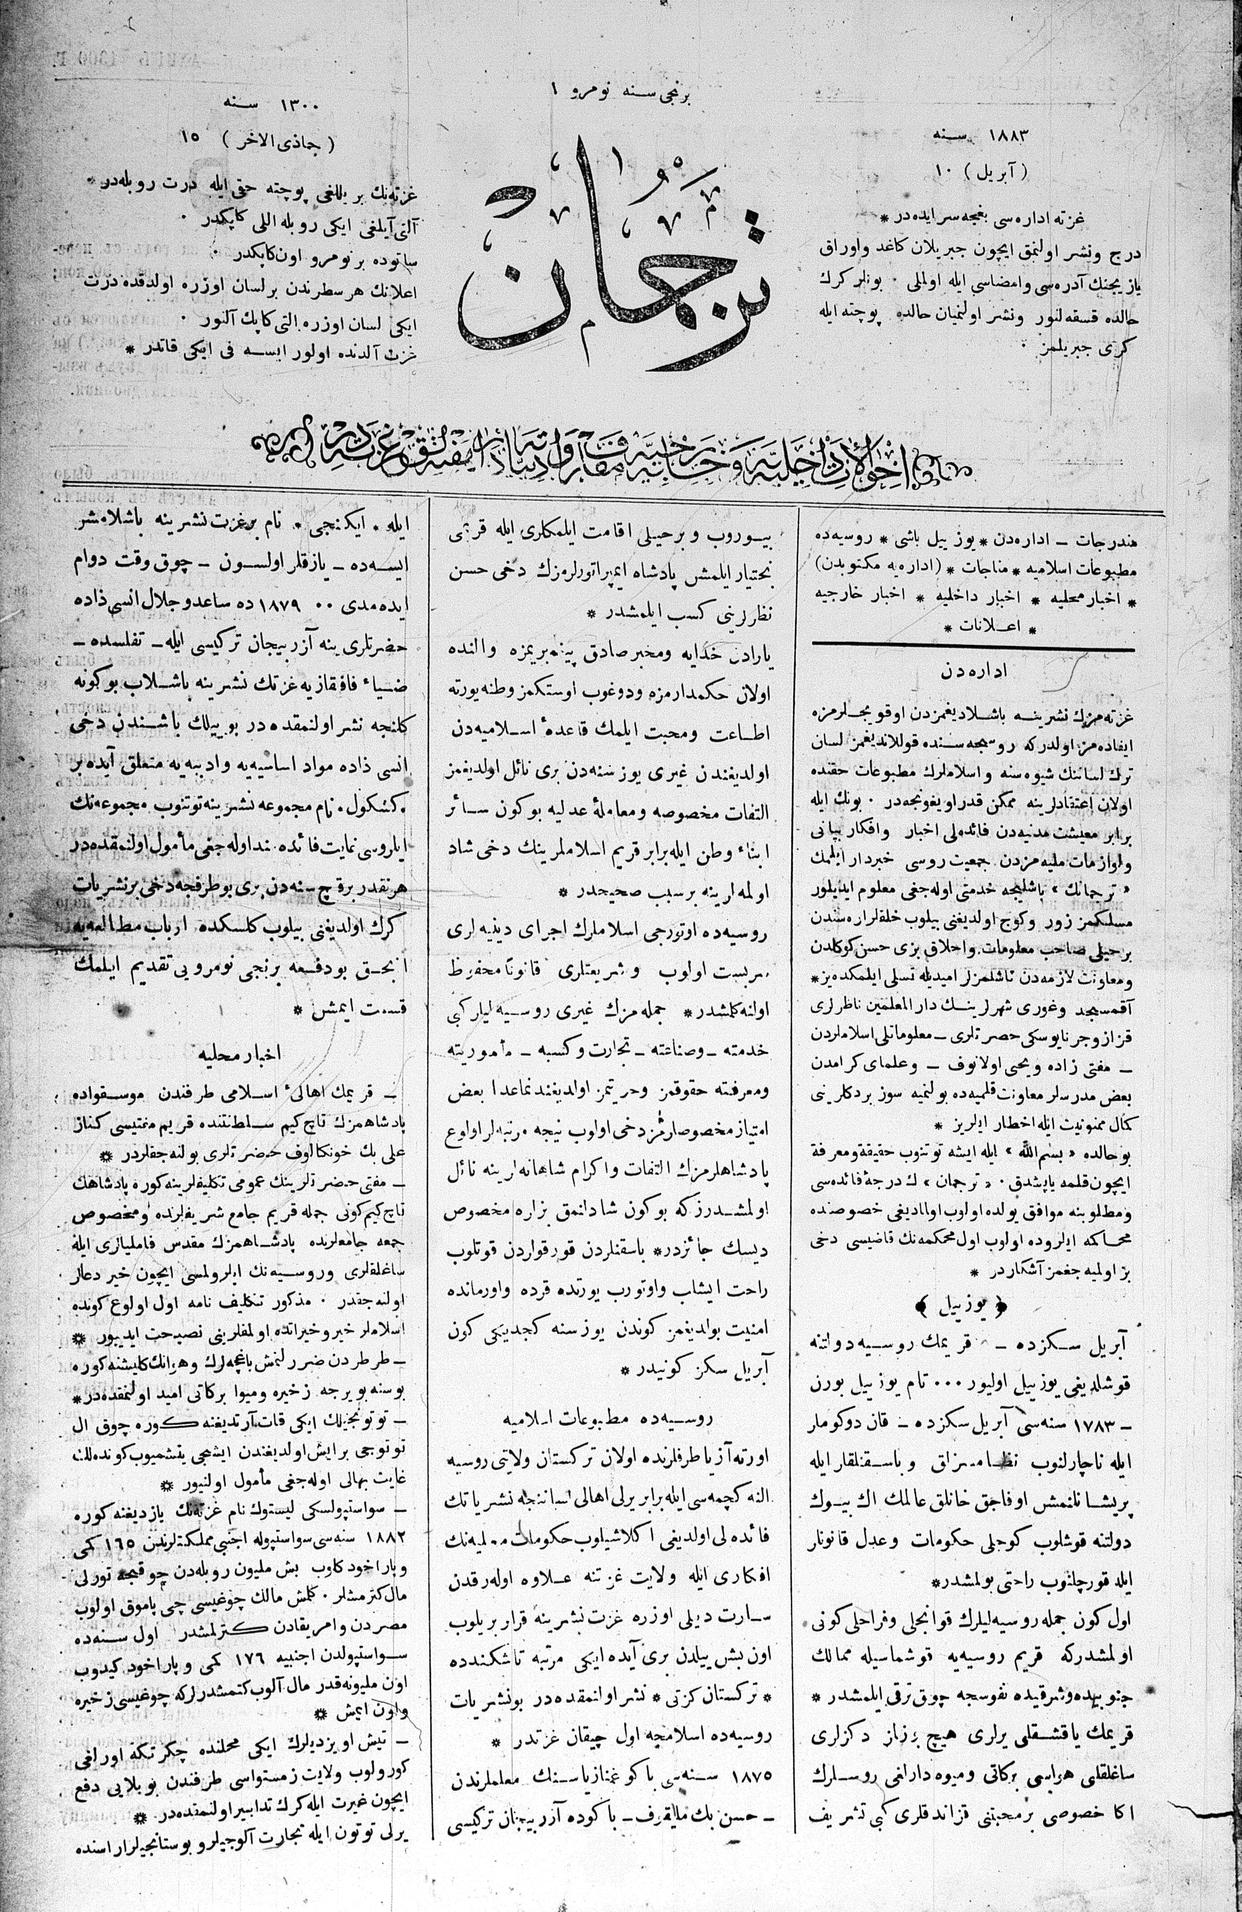 برنجی سنه نومرو ١
١٨٨٣ سنه
( آبریل ) ١٠
غزته اداره سی بغچه سرایده در *
درج ونشر اولنمق ایچون جبریلان کاغد واوراق
یازیجنك آدره سی وامضاسی ایله اولملی . بونلر کرك
حالده قسقه لنور ونشر اولنمیان حالده پوچته ایله
کری جبریلمز .
١٣٠٠ سنه
( جماذی الاخر ) ١٥
غزته نك بر ییللغی پوچته حقی ایله درت روبله در .
آلتی آیلغی ایکی روبله اللی کاپکدر .
ساتوده بر نومرو اون کاپکدر .
اعلانك هر سطرندن بر لسان اوزره اولدقده درت
ایکی لسان اوزره التی کاپك آلنور .
آلدنده اولور ایسه فی ایکی قاتدر *
ترجمان
مندرجات ـ اداره دن * یوز ییل باشی * روسیه ده
مطبوعات اسلامیه * مناجات * (اداره یه مکتوبدن)
* اخبار محلیه * اخبار داخلیه * اخبار خارجیه
* اعلانات *
اداره دن
غزته مزك نشرینه باشلادیغمزدن اوقویجیلرمزه
افاده مز اولدرکه روسیجه سنده قوللاندیغمز لسان
ترك لساننك شیوه سنه واسلاملرك مطبوعات حقنده
اولان اعتقادلرینه ممکن قدر اویغونجه در . بونك ایله
برابر معیشت مدنیه دن فائده لی اخبار وافکار بیانی
ولوازمات ملیه مزدن جمعیت روسی خبردار ایلمك
« ترجمانك » باشلیجه خدمتی اوله جغی معلوم ایدیلور
مسلکمز زور وکوج اولدیغی بیلوب خلقلر اره سندن
بر حیلی صاحب معلومات واخلاق بزی حسن کوکلدن
ومعاونت لازمه دن تاشلمزلر امیدیله تسلی ایلمکده یز *
آقمسجد وغوری شهرلرینك دار المعلمین ناظرلری
قزاز وچرنایوسکی حضرتلری ـ معلوماتلی اسلاملردن
ـ مفتی زاده ویحی اولانوف ـ وعلمای کرامدن
بعض مدرسلر معاونت قلمیه ده بولنمیه سوز بردکلرینی
کمال ممنونیت ایله اخطار ایلریز *
بو حالده « بسم الله » ایله ایشه توتنوب حقیقه ومعرفة
ایچون قلمه یاپشدق . « ترجمان » ك درجۀ فائده سی
ومطلوبنه موافق یولده اولوب اولمادیغی خصوصنده
محاکمه ایلروده اولوب اول محکمه نك قاضیسی دخی
بز اولمیه جغمز آشکاردر *
﴿ یوز ییل ﴾
آبریل سکزده ـ قریمك روسیه دولتنه
قوشلدیغی یوز ییل اولیور ... تام یوز ییل بورن
ـ ١٧٨٣ سنه سی آبریل سکزده ـ قان دوکومار
ایله ناچارلنوب نظامسزلق وباسقنلقلر ایله
پریشانلنمش اوفاجق خانلق عالمك اك بیوك
دولتنه قوشلوب کوجلی حکومات وعدل قانونلر
ایله قورچلنوب راحتی بولمشدر *
اول کون جمله روسیه لیلرك قوانچلی وفراحلی کونی
اولمشدرکه قریم روسیه یه قوشماسیله ممالك
جنوبیده وشرقیده نفوسجه چوق ترقی ایلمشدر *
قریمك یاقشقلی یرلری هیچ بوزلماز دکزلری
ساغلقلی هواسی برکاتی ومیوه دارلغی روسلرك
اکا خصوصی بر محبتنی قزاندقلری کبی تشریف
بیوروب وبرحیلی اقامت ایلمکلری ایله قریمی
بختیار ایلمش پادشاه ایمپراتورلرمزك دخی حسن
نظرلرینی کسب ایلمشدر *
یارادن خدایه ومخبر صادق پیغمبریمزه والنده
اولان حکمدارمزه ودوغوب اوستکمز وطنه یورته
اطاعت ومحبت ایلمك قاعدۀ اسلامیه دن
اولدیغندن غیری یوز سنه دن بری نائل اولدیغمز
التفات مخصوصه ومعاملۀ عدلیه بوکون سائر
ابناء وطن ایله برابر قریم اسلاملرینك دخی شاد
اولمه لرینه بر سبب صحیحدر *
روسیه ده اوتورجی اسلاملرك اجرای دینیه لری
سربست اولوب وشریعتلری قانونًا محفوظ
اولنه کلمشدر * جمله مزك غیری روسیه لیلر کبی
خدمته ـ وصناعته ـ تجارت وکسبه ـ مأموریته
ومعرفته حقوقمز وحریتمز اولدیغندنماعدا بعض
امتیاز مخصوصلرمز دخی اولوب نیچه مرتبه لر اولوغ
پادشاهلرمزك التفات واکرام شاهانه لرینه نائل
اولمشدرزکه بوکون شادلنمق بزلره مخصوص
دیسك جائزدر * باسقنلردن قورقولردن قوتلوب
راحت ایشلاب واوتورب یورتده قرده واورمانده
امنیت بولدیغمز کوندن یوز سنه کجدیکی کون
آبریل سکز کونیدر *
روسیه ده مطبوعات اسلامیه
اورته آزیا طرفلرنده اولان ترکستان ولایتی روسیه
النه کچمه سی ایله برابر یرلی اهالی لسانجه نشریاتك
فائده لی اولدیغی اکلاشیلوب حکومات محلیه نك
افکاری ایله ولایت غزتنه علاوه اوله رقدن
سارت دیلی اوزره غزت نشرینه قرار بریلوب
اون بش ییلدن بری آیده ایکی مرتبه تاشکندده
* ترکستان کزتی * نشر اولنمقده در بو نشریات
روسیه ده اسلامجه اول چیقان غزتدر *
١٨٧٥ سنه سی باکو غمنازیاسنك معلملرندن
ـ حسن بك ملایقوف ـ باکوده آزربیجان ترکیسی
ایله « ایکنجی » نام بر غزت نشرینه باشلامشر
ایسه ده ـ یازقلر اولسون ـ چوق وقت دوام
ایده مدی .. ١٨٧٩ ده ساعد وجلال انسی زاده
حضرتلری ینه آزربیجان ترکیسی ایله ـ تفلسده ـ
ضیاء قافقازیه غزتك نشرینه باشلاب بوکونه
کلنجه نشر اولنمقده در بو ییلك باشندن دخی
انسی زاده مواد اساسیه یه وادبیه یه متعلق آیده بر
« کشکول » نام مجموعه نشرینه توتنوب مجموعه نك
ایلروسی غایت فائده مند اوله جغی مأمول اولنمقده در
هر نقدر بر قچ سنه دن بری بو طرفجه دخی بر نشریات
کرك اولدیغی بیلوب کلسکده ارباب مطالعه یه
انجق بو دفعه برنجی نومرویی تقدیم ایلمك
قسمت ایمش *
اخبار محلیه
ـ قریمك اهالئ اسلامی طرفندن موسقواده
پادشاهمزك تاج کیم سلطنتنده قریم مفتیسی کناز
علی بك خونکالوف حضرتلری بولنه جقلردر *
ـ مفتی حضرتلرینك عمومی تکلیفلرینه کوره پادشاهك
تاج کیم کونی جمله قریم جامع شریفلرده ومخصوص
جمعه جامعلرنده پادشاهمزك مقدس فامیلیالری ایله
ساغلقلری وروسیه نك ایلرولمسی ایچون خیر دعالر
اولنه جقدر . مذکور تکلیف نامه اول اولوغ کونده
اسلاملر خیر وخیراتده اولمقلرینی نصیحت ایدییور *
ـ طرطردن ضررلنمش باغچه لرك وهوانك کلیشنه کوره
بو سنه بویرجه زخیره ومیوا برکاتی امید اولنمقده در *
ـ توتونجیلك ایکی قات آرتدیغنه کوره چوق ال
توتوجی بر ایش اولدیغندن ایشجی یتشمیوب کونده لك
غایت بهالی اوله جغی مأمول اولنیور *
ـ سواستپولسکی لیستوك نام غزته نك یازدیغنه کوره
١٨٨٢ سنه سی سواستپوله اجنبی مملکتلرندن ١٦٥ کمی
وپاراخود کلوب بش ملیون روبله دن چوقجه تورلی
مال کترمشلر . کلمش مالك چوغیسی چی پاموق اولوب
مصردن وامریقادن کترلمشدر اول سنه ده
سواستپولدن اجنبیه ١٧٦ کمی وپاراخود کیدوب
اون ملیونه قدر مال آلوب کتمشدرلرکه چوغیسی زخیره
واون ایمش *
ـ تیش اویزدیلرك ایکی محلنده چکرتکه اورلغی
کورولوب ولایت زمستواسی طرفندن بو بلایی دفع
ایچون غیرت ایله کرك تدابیر اولنمقده در *
یرلی توتون ایله تجارت آلوجیلر وبوستانجیلر اراسنده